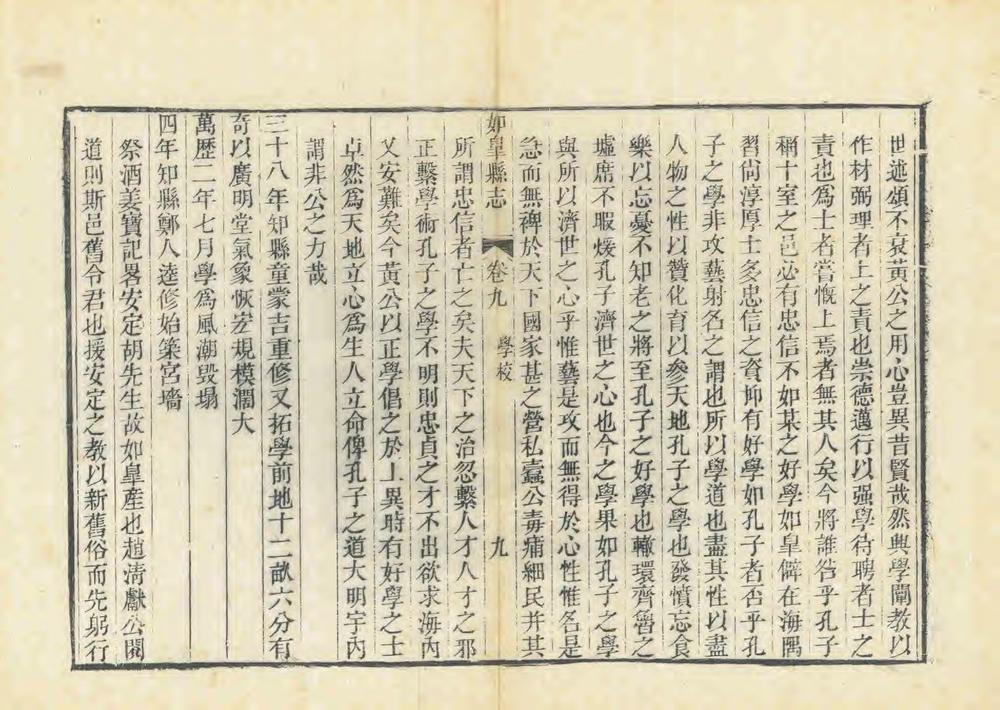 世述頌不衰黃公之用心豈異昔賢哉然興學闡教以
作材弼理者上之責也崇德邁行以强學待聘者士之
責也爲士者嘗慨上焉者無其人矣今將誰咎乎孔子
稱十室之邑必有忠信不如某之好學如皐僻在海隅
習尙淳厚士多忠信之資抑有好學如孔子者否乎孔
子之學非攻藝射名之謂也所以學道也盡其性以盡
人物之性以贊化育以參天地孔子之學也發憤忘食
樂以忘憂不知老之將至孔子之好學也轍環齊魯之
墟席不暇煖孔子濟世之心也今之學果如孔子之學
與所以濟世之心乎惟藝是攻而無得於心性惟名是
急而無裨於天下國家甚之營私蠧公毒痡細民并其
如皐縣志 卷九 學校 九
所謂忠信者亡之矣夫天下之治忽繫人才人才之邪
正繫學術孔子之學不明則忠貞之才不出欲求海內
乂安難矣今黃公以正學倡之於上異時有好學之士
卓然爲天地立心爲生人立命俾孔子之道大明宇內
謂非公之力哉
三十八年知縣童蒙吉重修又拓學前地十二畝六分有
奇以廣明堂氣象恢宏規模濶大
萬歷二年七月學爲風潮毀塌
四年知縣鄭人逵修始築宮墻
祭酒姜寶記畧安定胡先生故如皐產也趙淸獻公閱
道則斯邑舊令君也援安定之教以新舊俗而先躬行